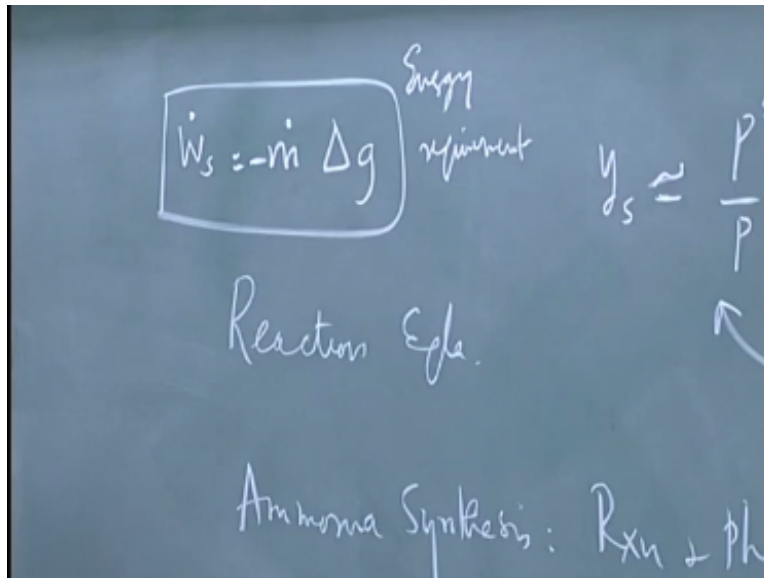 Ẇs = -ṁ Δg
Energy
requirement
ys ≃ P / P
Reaction Eqla.
Ammonia Synthesis: Rxn + ph